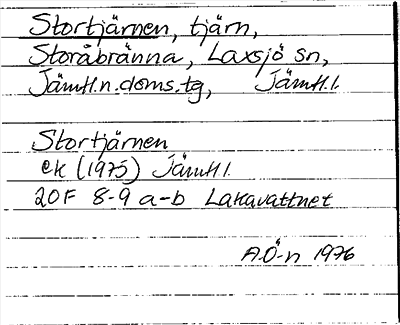 Stortjärnen, tjärn,
Storåbränna, Laxsjö sn,
Jämtl.n.doms.tg, Jämtl.l.
Stortjärnen
ek (1975) Jämtl l.
20F 8-9 a-b Lakavattnet
A.Ö-n 1976